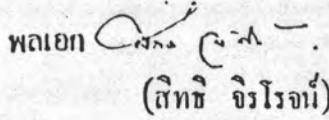 พลเอก
(สิทธิ จิรโรจน์)